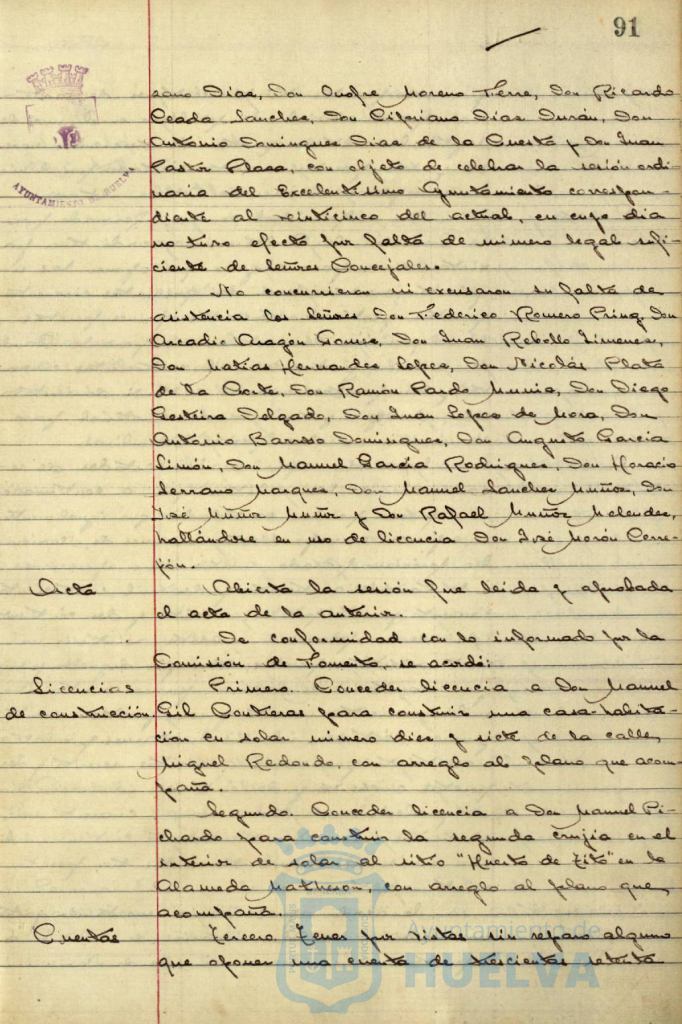 91
cano Díaz, Don Onofre Moreno Tierre, Don Ricardo
Ceada Sanchez, Don Cipriano Díaz Durán, Don
Antonio Dominguez Diaz de la Cuesta y Don Juan
Pastor Plaza, con objeto de celebrar la sesión ordi-
naria del Excelentissimo Ayuntamiento correspon-
diente al veinticinco del actual, en cuyo dia
no tuvo efecto por falta de número legal sufi-
ciente de Señores Concejales.
No concurrieron ni excusaron su falta de
asistencia los Señores Don Federico Romero Don
Arcadio Aragón Gomez, Don Juan Rebollo Jimenez,
Don Matías Hernandez Lopez, Don Nicolás Plata
de la Corte, Don Ramón Pardo Don Diego
Delgado, Don Juan Lopez de Mora, Don
Antonio Barroso Dominguez, Don Augusto Garcia
Limón, Don Manuel García Rodriguez, Don Horacio
Serrano Marquez, Don Manuel Sanchez Muñoz, Don
José Muñoz Muñoz y Don Rafael Muñoz Melendez,
hallándose en uso de licencia Don José Morón Cerre-
jón.
Acta
Abierta la sesión fue leida y aprobada
el acta de la anterior.
De conformidad con lo informado por la
Comisión de Fomento, se acordó:
Licencias
de construcción.
Primero. Conceder licencia a Don Manuel
Gil Contreras para construir una casa-habita-
ción en solar número diez y siete de la calle
Miguel Redondo, con arreglo al plano que acom-
paña.
Segundo. Conceder licencia a Don Manuel Pi-
chardo para construir la segunda crujía en el
interior de solar al sitio "Huerto de Tito" en la
Alameda Matheson, con arreglo al plano que
acompaña.
Cuentas
Tercero. Tener por vistas sin reparo alguno
que oponer una cuenta de trescientas setenta
AYUNTAMIENTO DE HUELVA
Ayuntamiento de
HUELVA